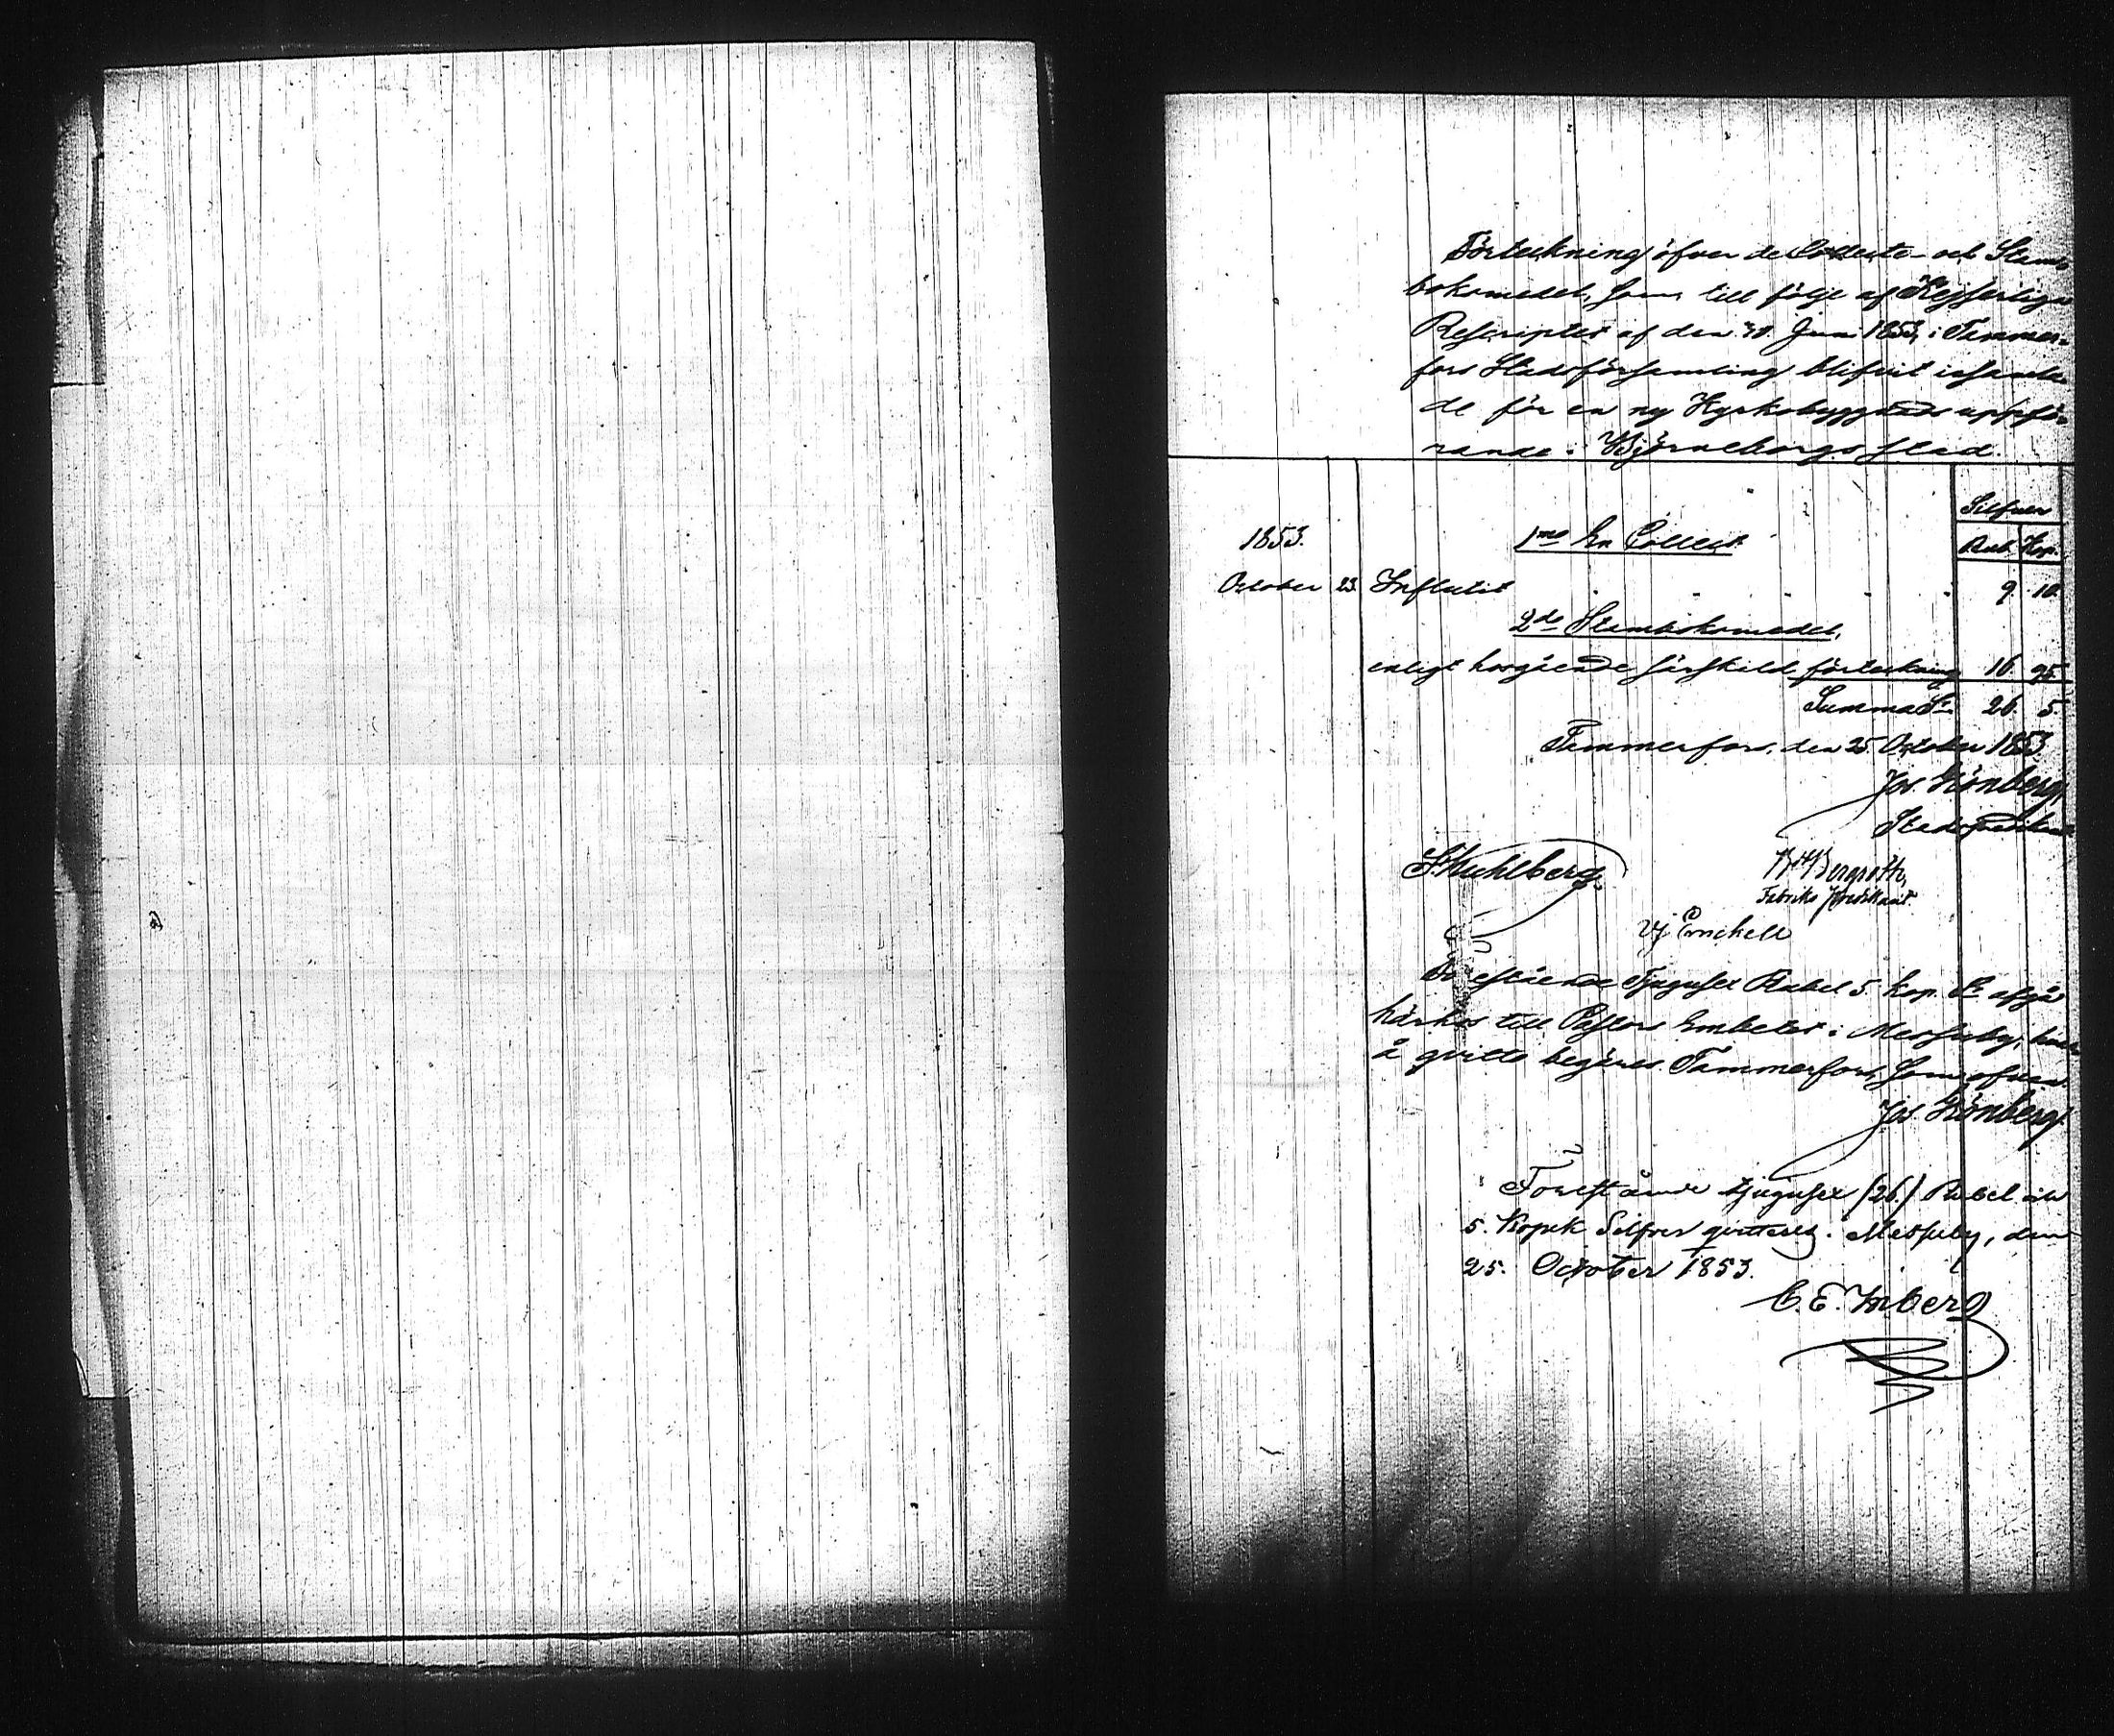 Förteckning öfver de Collecte- och Stam-
boksmedel, som till följe af Kejserliga
Rescriptet af den Juni 1853, i Tammer-
fors Stadsförsamling blifvit insamla-
de för en ny Kyrkobyggnads uppfö-
rande i Björneborgs stad.
Silfver
1853. 1mo En Collect. Rub. Kop.
October 23 Influtit 9. 10.
2do Stamboksmedel,
enligt hosgående särskild förteckning 16. 95.
Summa Sr 26. 5.
Tammerfors, den 25 October 1853.
Jos. Grönberg,
Stadspredikant
Kuhlberg. Bergroth,
Fabriks Predikant.
Emehell
Förestående Tjugusex Rubel 5. kop. Sr afgå
härhos till Pastors Embetet i Messuby, 
å qvitto begäres. Tammerfors, som ofvan.
Jos. Grönberg.
Förestående tjugusex (26.) Rubel
5. Kopek Silfver qvitteras. Messuby, den
25. October 1853.
C. E. Inberg